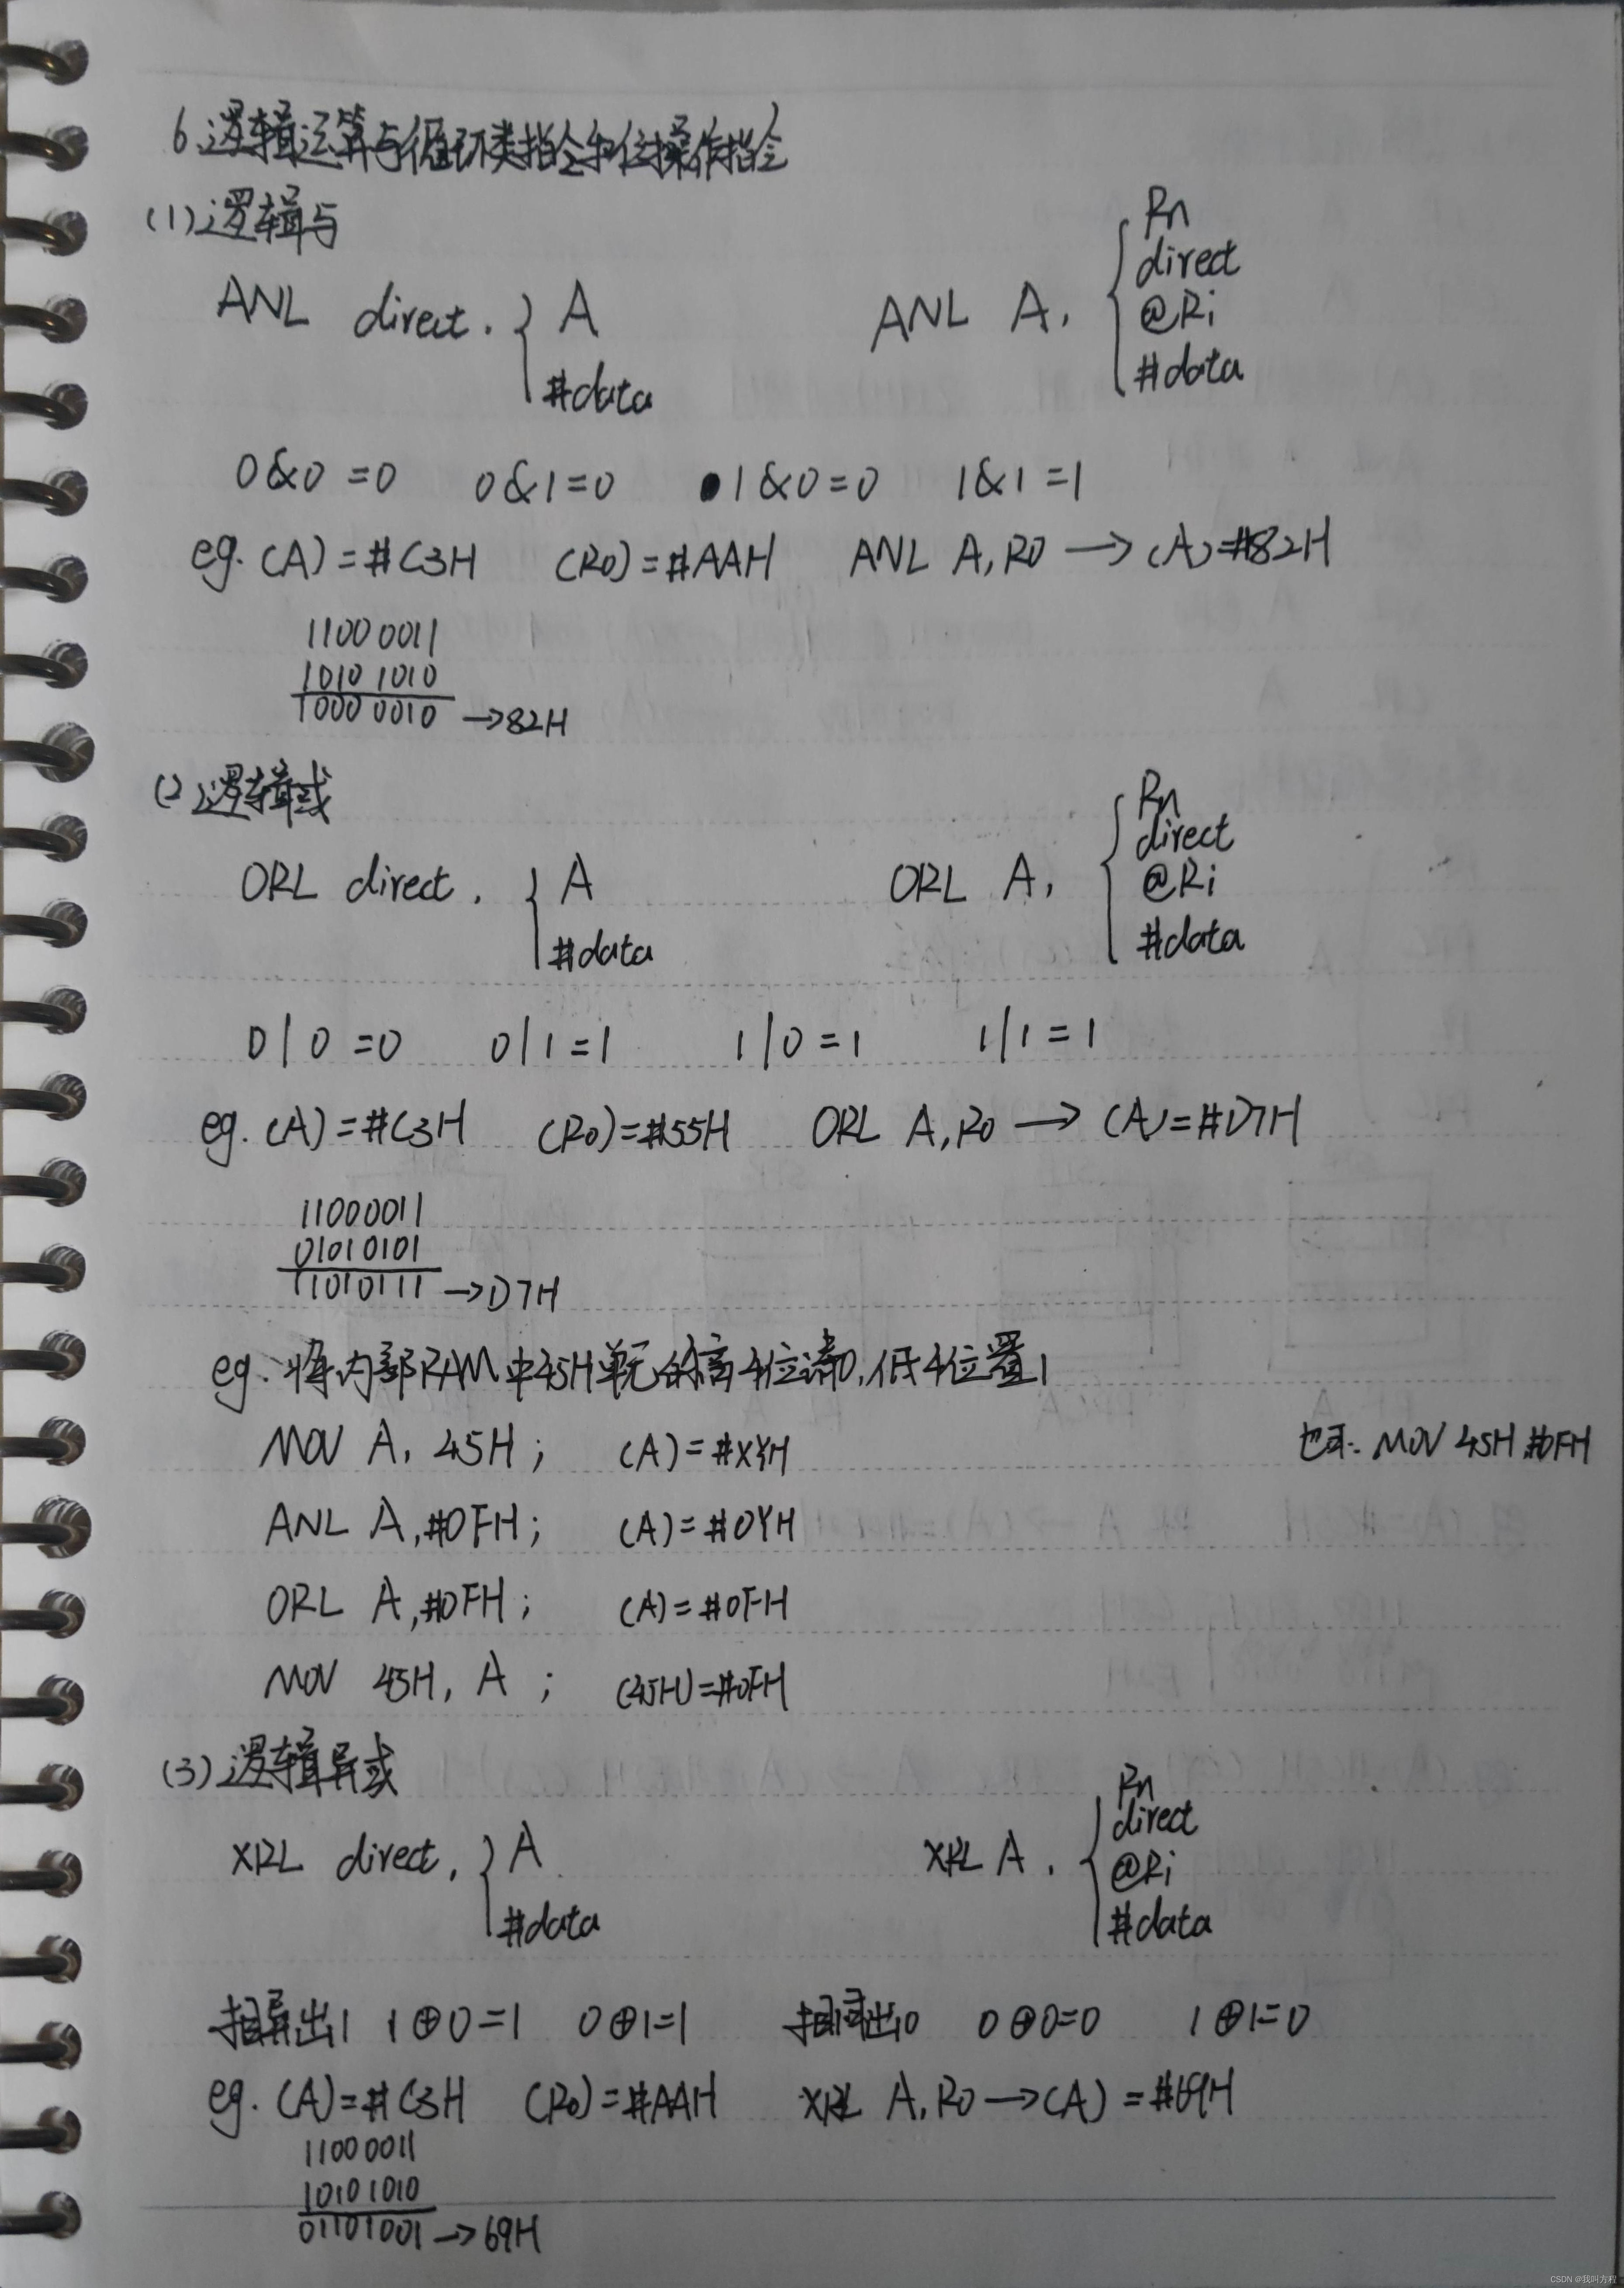 6.逻辑运算与循环类指令和位操作指令
(1)逻辑与
ANL direct, { A #data
ANL A, { Rn direct @Ri #data
0&0=0 0&1=0 1&0=0 1&1=1
eg. (A)=#C3H (R0)=#AAH ANL A,R0 → (A)=#82H
1100 0011
1010 1010
1000 0010 →82H
(2)逻辑或
ORL direct, { A #data
ORL A, { Rn direct @Ri #data
0|0=0 0|1=1 1|0=1 1|1=1
eg. (A)=#C3H (R0)=#55H ORL A,R0 → (A)=#D7H
11000011
01010101
11010111 →D7H
eg.将内部RAM中45H单元的高4位清0,低4位置1
MOV A, 45H; (A)=#XYH 也可: MOV 45H,#0FH
ANL A,#0FH; (A)=#0YH
ORL A,#0FH; (A)=#0FH
MOV 45H, A; (45H)=#0FH
(3)逻辑异或
XRL direct, { A #data
XRL A, { Rn direct @Ri #data
相异出1 1⊕0=1 0⊕1=1 相同出0 0⊕0=0 1⊕1=0
eg. (A)=#C3H (R0)=#AAH XRL A,R0 → (A)=#69H
11000011
10101010
01101001 →69H
CSDN @我叫方程